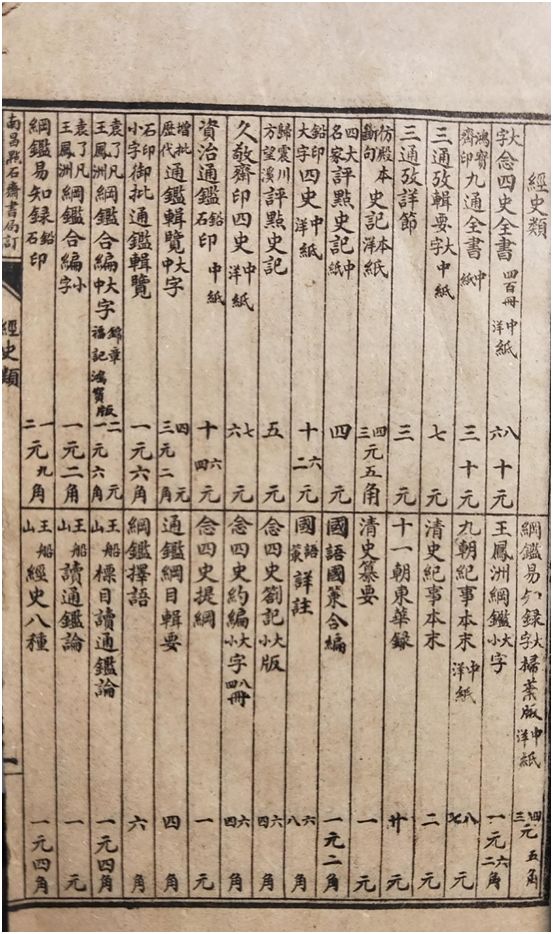 經史類
大字念四史全書 四百冊 中洋紙 八六十元
鴻寶齋印九通全書 中紙 三十元
三通攷輯要 大字 中紙 七元
三通攷詳節 三元
仿殿本斷句史記 本洋紙 四三元五角
四大名家評點史記 中紙 四元
鉛印大字四史 中洋紙 十六二元
歸震川方望溪評點史記 五元
久敬齋印四史 中洋紙 七六元
資治通鑑 鉛石印 中紙 十六四元
增批歷代通鑑輯覽 大中字 四元三元二角
石印小字御批通鑑輯覽 一元六角
袁了凡王鳳洲綱鑑合編 大中字 錦章福記鴻寶版 二元一元六角
袁了凡王鳳洲綱鑑合編 小字 一元二角
綱鑑易知錄 鉛石印 一二元九角
綱鑑易知錄 大字 掃葉版 中洋紙 四三元五角
王鳳洲綱鑑 大小字 一元六二角
九朝紀事本末 中洋紙 八七元
清史紀事本末 二元
十一朝東華錄 廿元
清史纂要 一元
國語國策合編 一元二角
國語策詳註 六八角
念四史劄記 大小版 六四角
念四史約編 大小字 八四冊 六四角
念四史提綱 一元
通鑑綱目輯要 四角
綱鑑擇語 六角
王船山標目讀通鑑論 一元四角
王船山讀通鑑論 一元
王船山經史八種 一元四角
南昌點石齋書局訂
經史類
一